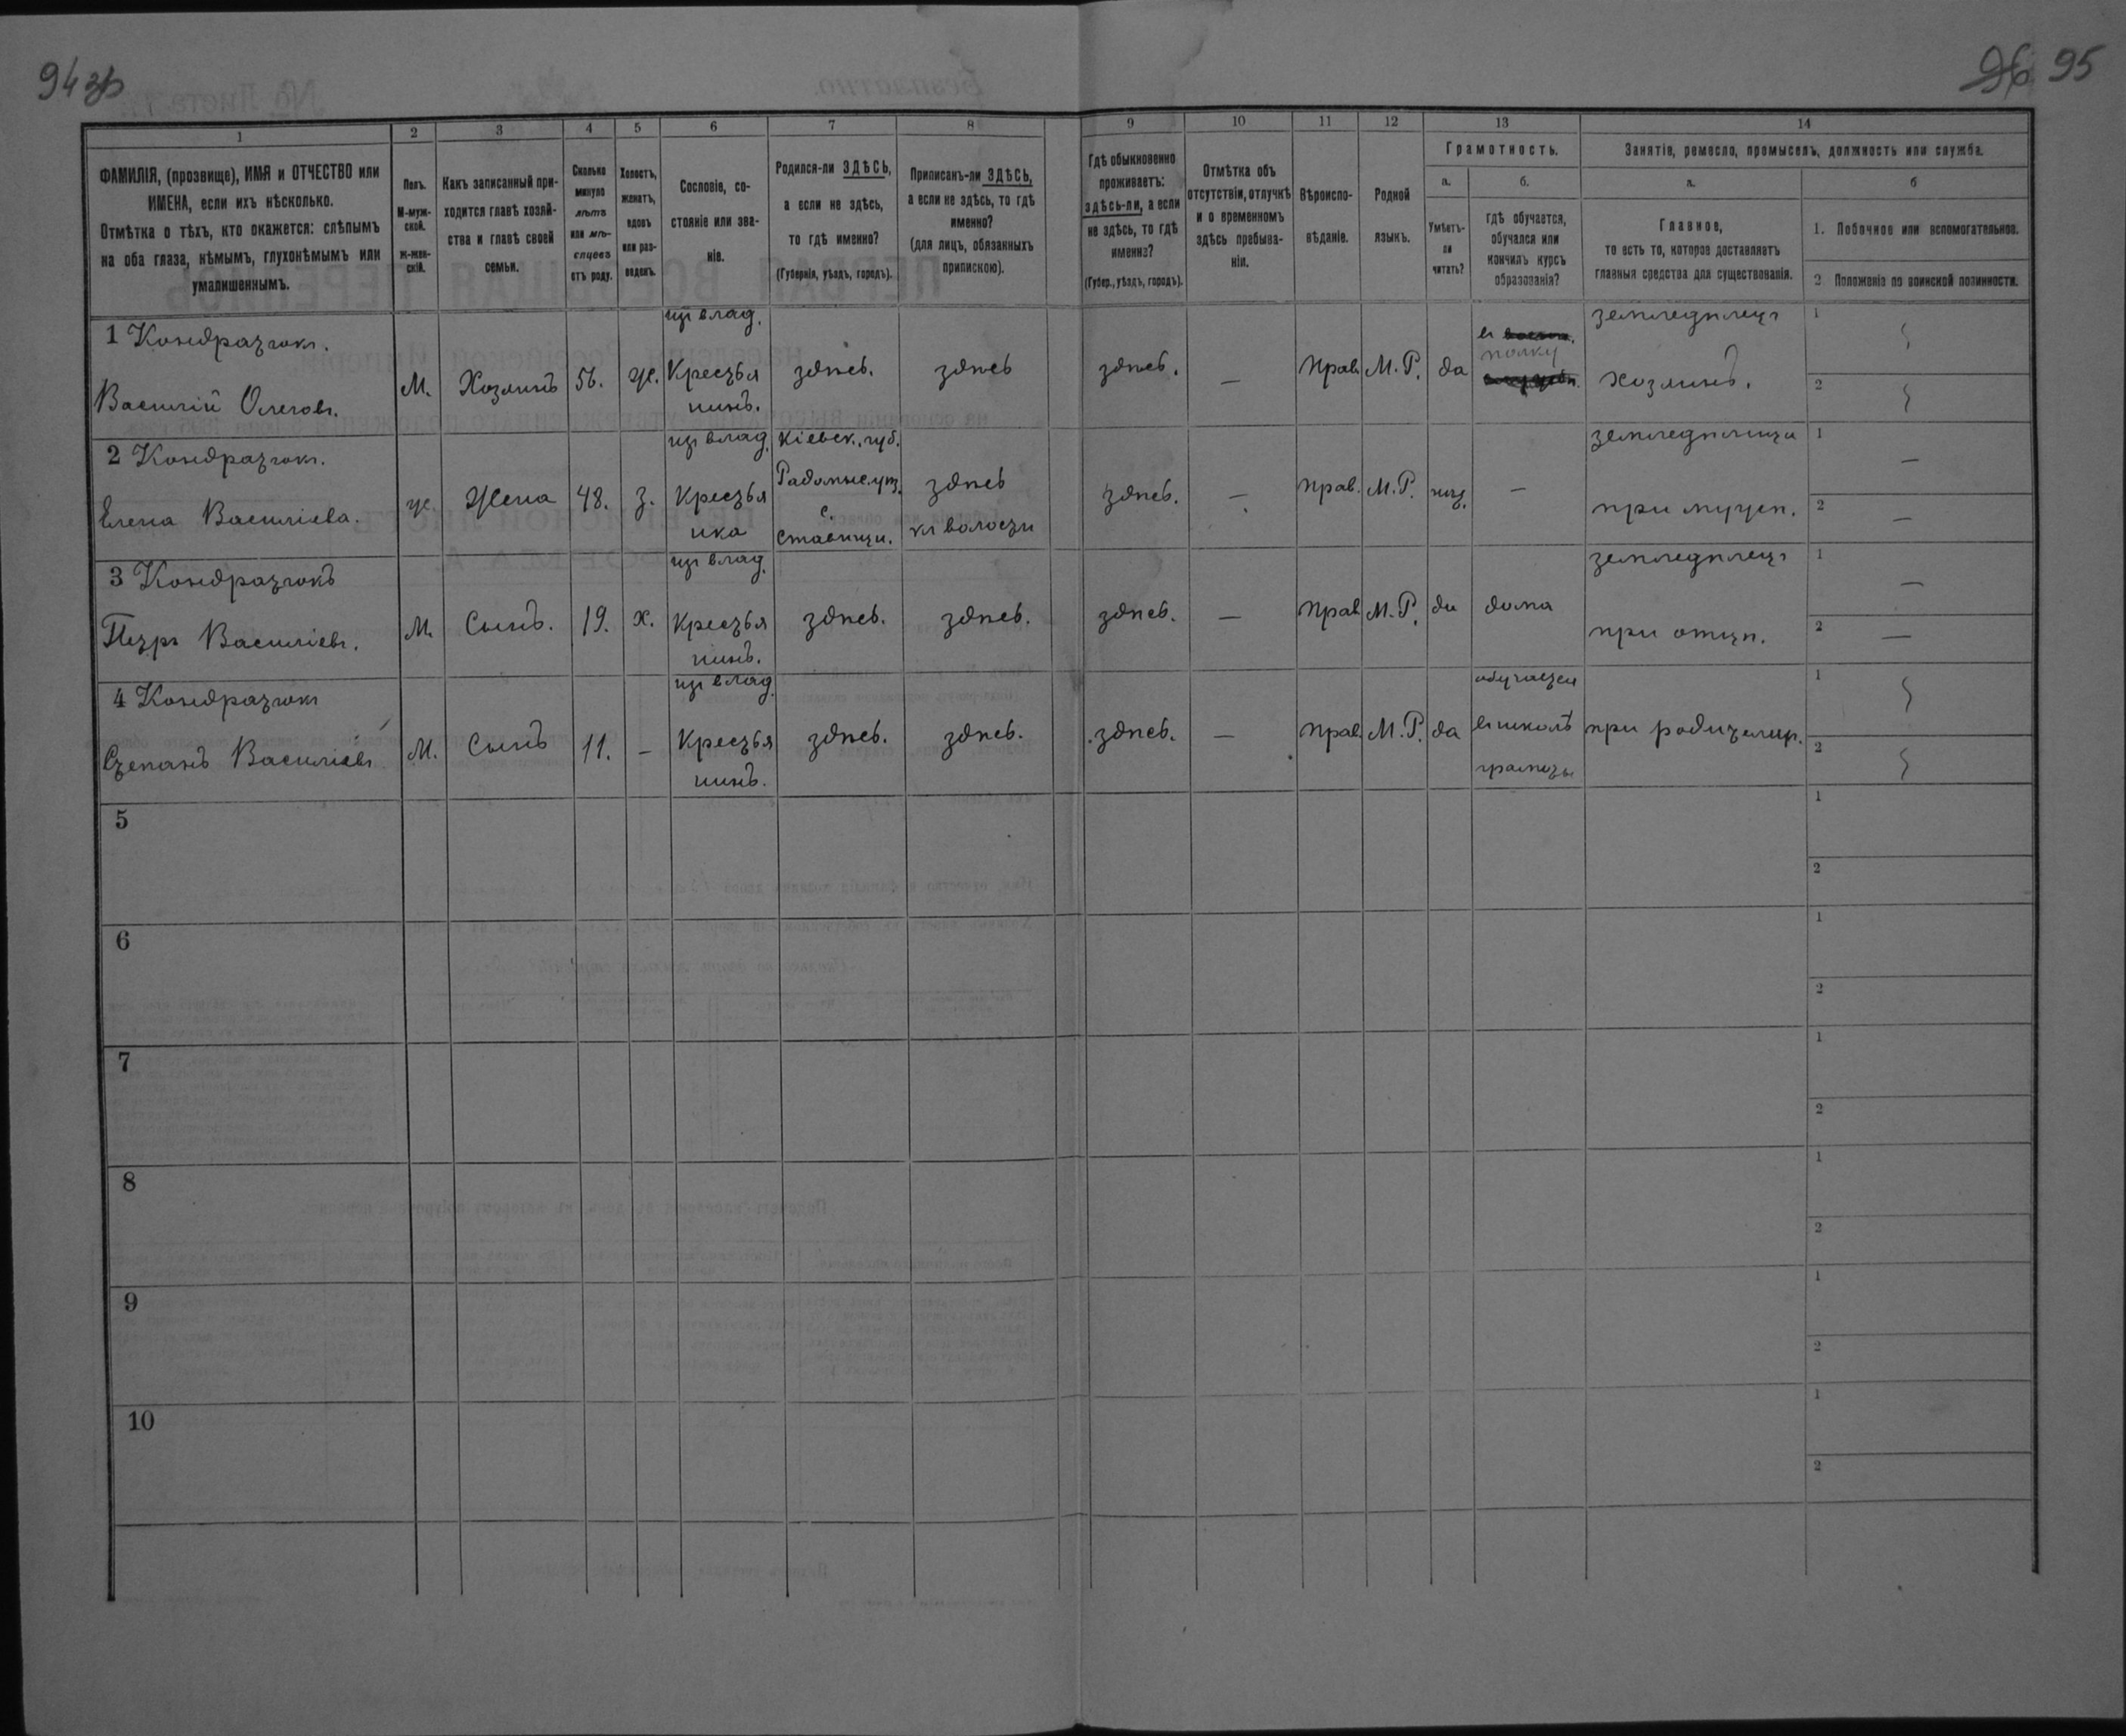 94 зв
96 95
1
2
3
4
5
6
7
8
9
10
11
12
13
14
ФАМИЛІЯ, (прозвище), ИМЯ и ОТЧЕСТВО или
ИМЕНА, если ихъ нѣсколько.
Отмѣтка о тѣхъ, кто окажется: слѣпымъ
на оба глаза, нѣмымъ, глухонѣмымъ или
умалишеннымъ.
Полъ.
М-муж-
ской.
ж-жен-
скій.
Какъ записанный при-
ходится главѣ хозяй-
ства и главѣ своей
семьи.
Сколько
минуло
лѣтъ
или мѣ-
сяцевъ
отъ роду.
Холостъ,
женатъ,
вдовъ
или раз-
веденъ.
Сословіе, со-
стояніе или зва-
ніе.
Родился-ли ЗДѢСЬ,
а если не здѣсь,
то гдѣ именно?
(Губернія, уѣздъ, городъ).
Приписанъ-ли ЗДѢСЬ,
а если не здѣсь, то гдѣ
именно?
(для лицъ, обязанныхъ
припискою).
Гдѣ обыкновенно
проживаетъ:
здѣсь-ли, а если
не здѣсь, то гдѣ
именно?
(Губер., уѣздъ, городъ).
Отмѣтка объ
отсутствіи, отлучкѣ
и о временномъ
здѣсь пребыва-
ніи.
Вѣроиспо-
вѣданіе.
Родной
языкъ.
Грамотность.
а.
б.
Умѣетъ-
ли
читать?
гдѣ обучается,
обучался или
кончилъ курсъ
образованія?
Занятіе, ремесло, промыселъ, должность или служба.
а.
б
Главное,
то есть то, которое доставляетъ
главныя средства для существованія.
1. Побочное или вспомогательное.
2 Положеніе по воинской повинности.
1 Кондратюкъ.
Василій Олеговъ.
М.
Хозяинъ
56.
ж.
изъ влад.
Крестья
нинъ.
здѣсь.
здѣсь
здѣсь.
—
Прав.
М.Р.
да
въ
полку
земледѣлецъ
хозяинъ.
1
2
2 Кондратюкъ.
Елена Василіева.
ж.
Жена
48.
з.
изъ влад.
Крестья
нка
Кіевск. губ.
Радомыс. ут.
с.
Ставищи.
здѣсь
къ волости
здѣсь.
—
Прав.
М.Р.
нѣт.
—
земледѣлица
при мужѣ.
1 —
2 —
3 Кондратюкъ
Петръ Василіевъ.
М.
Сынъ.
19.
х.
изъ влад.
Крестья
нинъ.
здѣсь.
здѣсь.
здѣсь.
—
Прав.
М.Р.
да
дома
земледѣлецъ
при отцѣ.
1 —
2 —
4 Кондратюкъ
Степанъ Василіевъ
М.
Сынъ
11.
—
изъ влад.
Крестья
нинъ.
здѣсь.
здѣсь.
здѣсь.
—
Прав.
М.Р.
да
обучается
въ школѣ
грамоты
при родителяхъ.
1
2
5
1
2
6
1
2
7
1
2
8
1
2
9
1
2
10
1
2